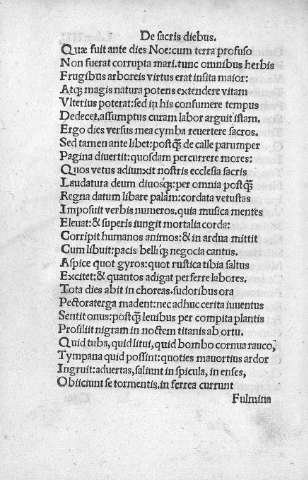 De sacris diebus.
Quæ fuit ante dies Noe: cum terra profuso
Non fuerat corrupta mari. tunc omnibus herbis
Frugibus arboreis virtus erat insita maior:
Atq; magis natura potens extendere vitam
Vlterius poterat: sed in his consumere tempus
Dedecet, assumptus curam labor arguit istam.
Ergo dies versus mea cymba reuertere sacros.
Sed tamen ante libet: postq̃ de calle parumper
Pagina diuertit: quosdam percurrere mores:
Quos vetus adiunxit nostris ecclesia sacris
Laudatura deum diuosq;: per omnia postq̃
Regna datum libare palam: cordata vetustas
Imposuit verbis numeros, quia musica mentes
Eleuat: & superis iungit mortalia corda:
Corripit humanos animos: & in ardua mittit
Cum libuit: pacis belliq; negocia cantus.
Aspice quot gyros: quot rustica tibia saltus
Excitet: & quantos adigat perferre labores.
Tota dies abit in choreas. sudoribus ora
Pectora terga madent: nec adhuc cerita iuuentus
Sentit onus: postq̃ leuibus per compita plantis
Prosiliit nigram in noctem titanis ab ortu.
Quid tuba, quid litui, quid bombo cornua rauco,
Tympana quid possint: quoties mauortius ardor
Ingruit: aduertas, saliunt in spicula, in enses,
Obiiciunt se tormentis, in ferrea currunt
Fulmina